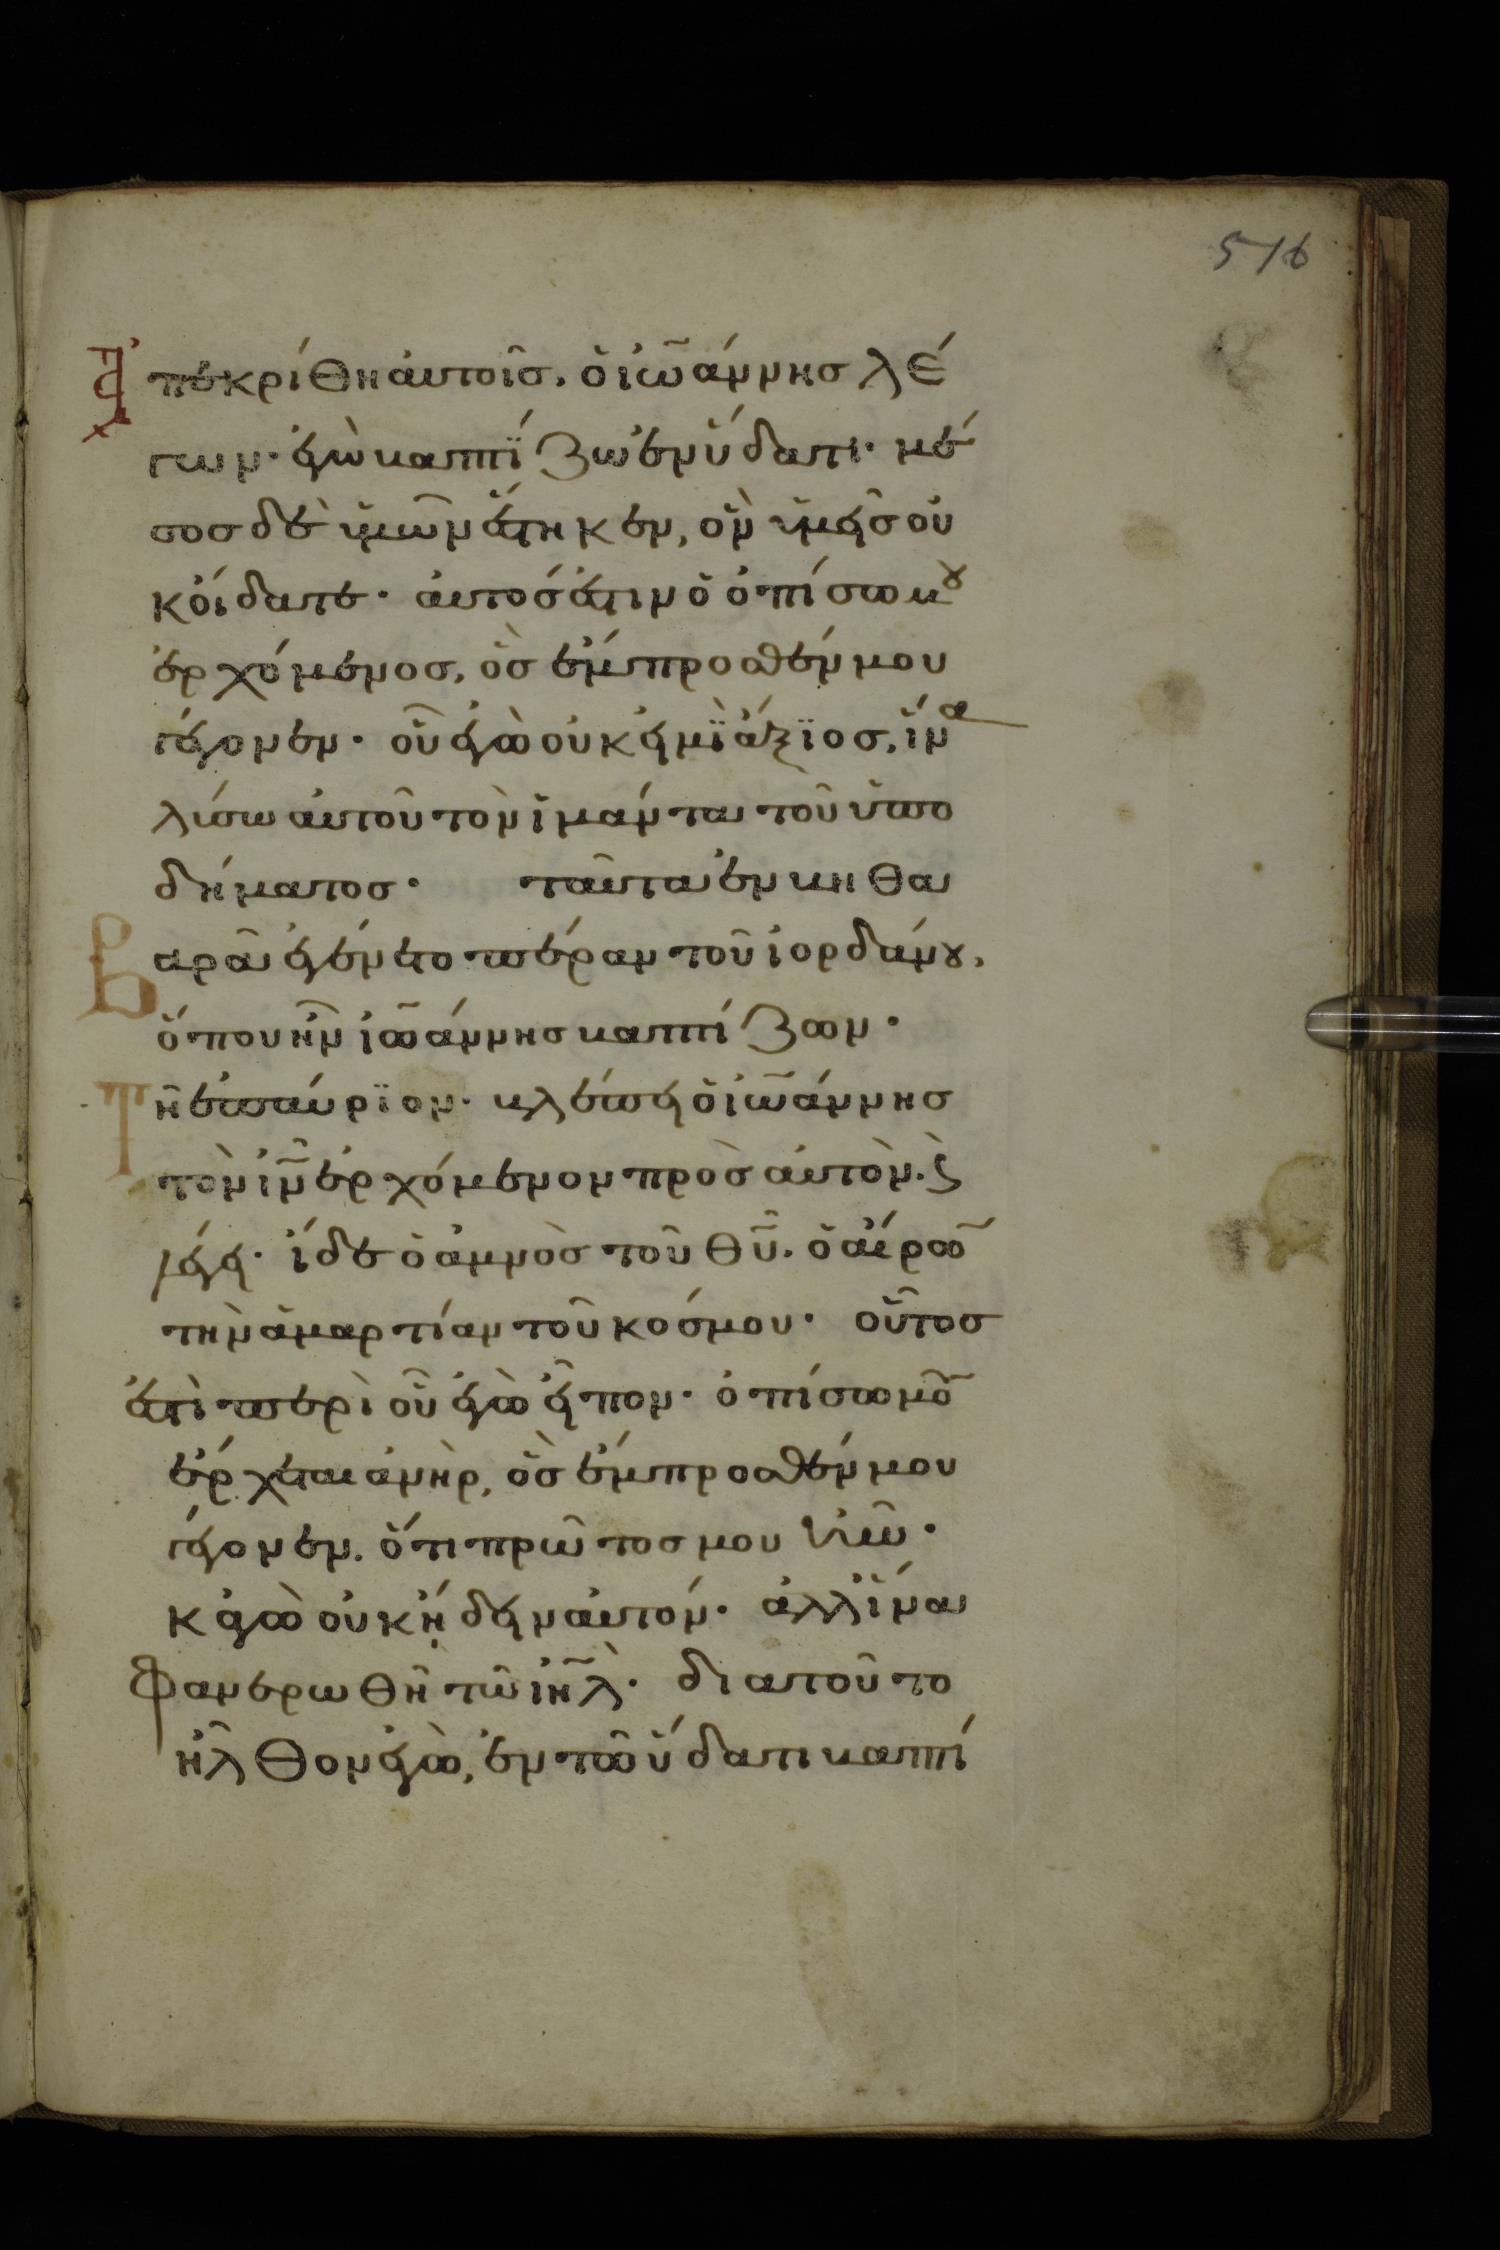 516
Ἀπεκρίθη αὐτοῖσ. ὁ ἰω̃άννησ λέ
γων· ἐγὼ βαπτΐζω ἐν ὕδατι· μέ
σοσ δὲ ὑμῶν ἕστηκεν, ὃν ὑμεῖσ οὐ
κ οἴδατε· αὐτόσ ἐστιν ὁ ὀπίσω μου
ἐρχόμενοσ, ὃσ ἔμπροσθέν μου
γέγονεν· οὗ ἐγὼ οὐκ εἰμῒ ἄξϊοσ, ἵνα
λύσω αὐτοῦ τὸν ἱμάντα τοῦ ὑπο
δήματοσ· ταῦτα ἐν βηθα
Βαρᾶ ἐγένετο πέραν τοῦ ἰορδάνου,
ὅπου ἦν ἰω̃άννησ βαπτίζων·
Τῆ ἐπαύρϊον· βλέπει ὁ ἰω̃άννησ
τὸν ἰν̃ ἐρχόμενον πρὸσ αὐτὸν. ϗ̀
λέγει· ἴδε ὁ ἀμνὸσ τοῦ θυ̃. ὁ αἴρω̃
τὴν ἁμαρτίαν τοῦ κόσμου· οὗτοσ
ἐστὶ περὶ οὗ ἐγὼ εἶπον· ὀπίσω μου
ἔρχεται ἀνὴρ, ὃσ ἔμπροσθέν μου
γέγονεν. ὅτι πρῶτοσ μου ἦν·
κἀγὼ οὐκ ἤδειν αὐτόν· ἀλλ' ἵνα
φανερωθῆ τῶ ἰη̃λ· διατοῦτο
ἦλθον ἐγὼ, ἐν τῶ ὕδατι βαπτί